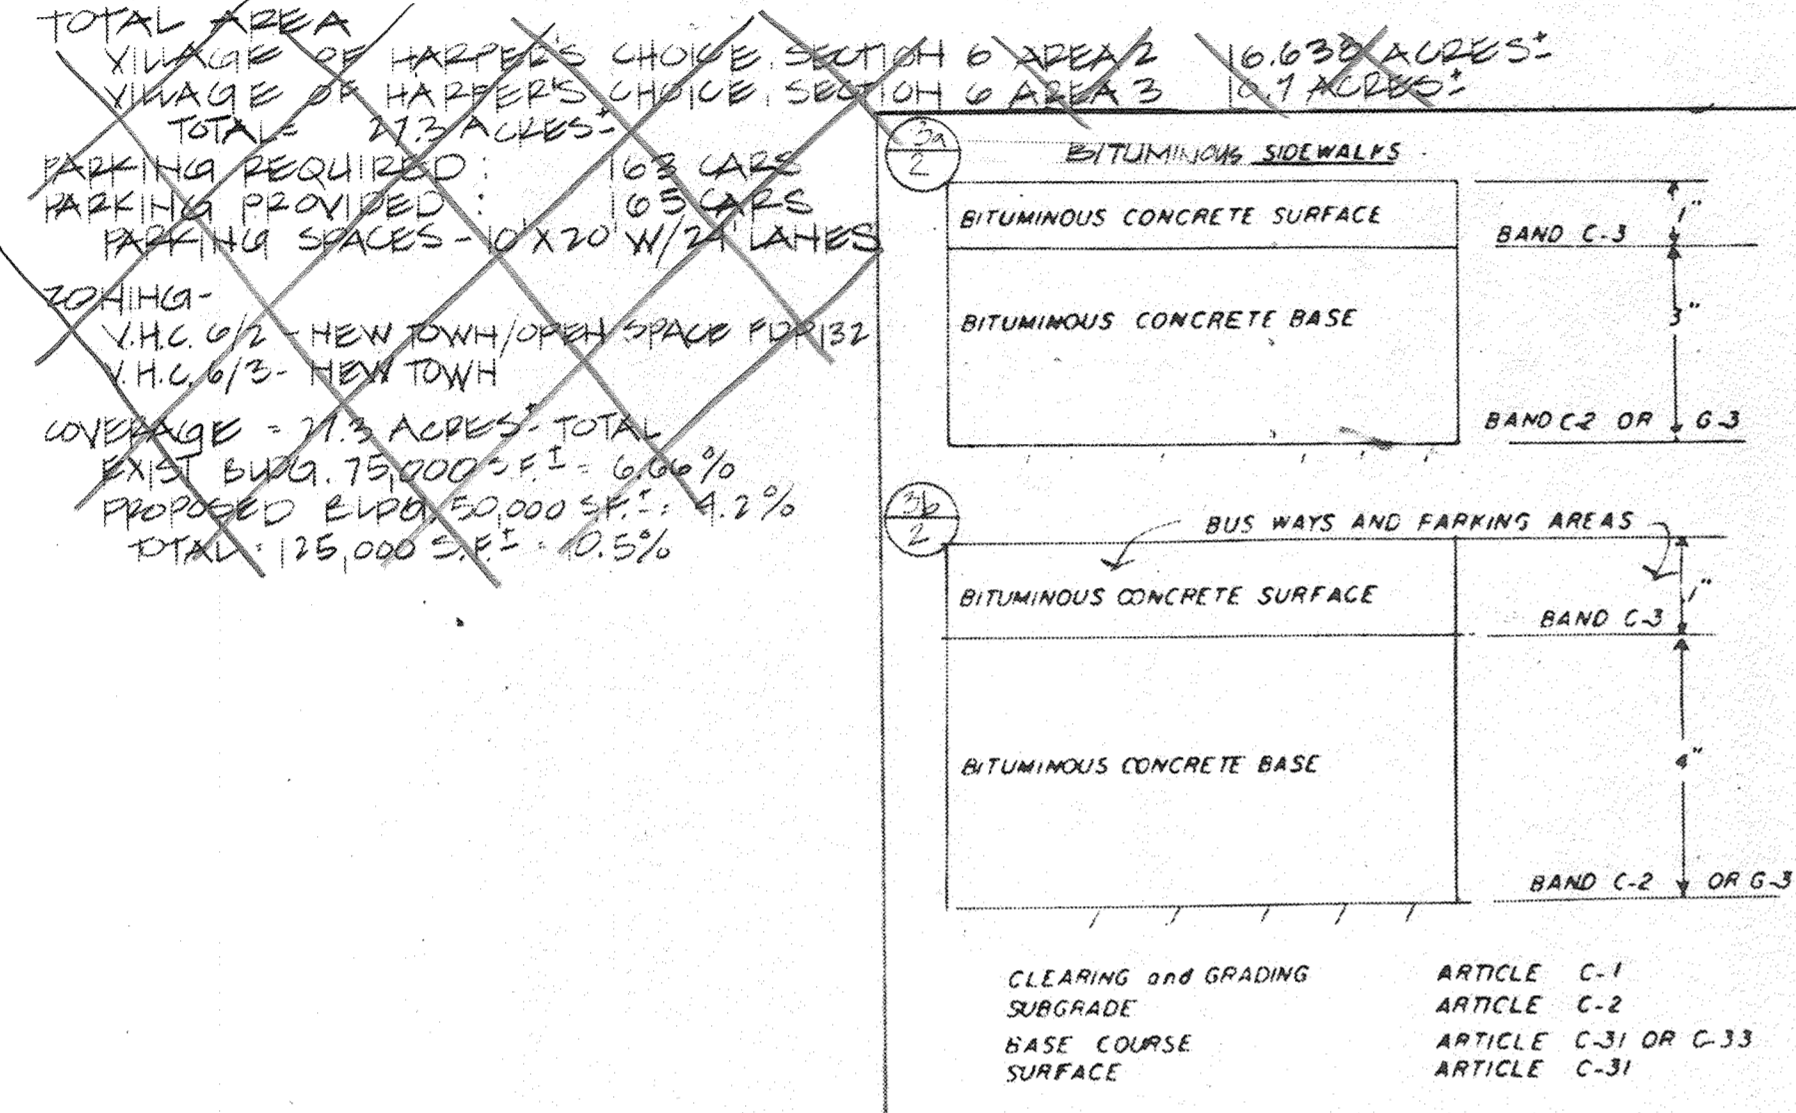 TOTAL AREA
VILLAGE OF HARPER'S CHOICE, SECTION 6 AREA 2 16.638 ACRES±
VILLAGE OF HARPER'S CHOICE, SECTION 6 AREA 3 10.7 ACRES±
TOTAL= 27.3 ACRES±
PARKING REQUIRED : 163 CARS
PARKING PROVIDED : 165 CARS
PARKING SPACES - 10' X 20' W/24' LANES
ZONING-
V.H.C. 6/2 - NEW TOWN/OPEN SPACE FDP 132
V.H.C. 6/3 - NEW TOWN
COVERAGE = 27.3 ACRES± TOTAL
EXIST BLDG. 75,000 S.F.± = 6.66%
PROPOSED BLDG. 50,000 S.F.± = 4.2%
TOTAL = 125,000 S.F.± = 10.5%
3a
2
BITUMINOUS SIDEWALKS
BITUMINOUS CONCRETE SURFACE
BAND C-3
1"
BITUMINOUS CONCRETE BASE
3"
BAND C-2 OR G-3
3b
2
BUS WAYS AND PARKING AREAS
BITUMINOUS CONCRETE SURFACE
BAND C-3
1"
BITUMINOUS CONCRETE BASE
4"
BAND C-2 OR G-3
CLEARING and GRADING ARTICLE C-1
SUBGRADE ARTICLE C-2
BASE COURSE ARTICLE C-31 OR C-33
SURFACE ARTICLE C-31